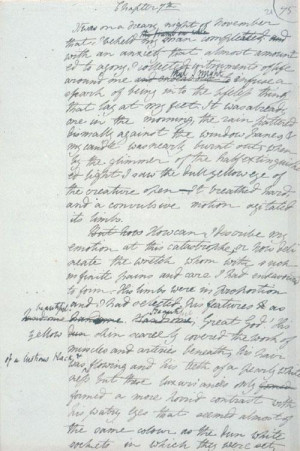 Chapter 7th
It was on a dreary night of November
that I beheld my man completed and
with an anxiety that almost amount
ed to agony, I collected instruments of life
around me that I might infuse a
spark of being into the lifeless thing
that lay at my feet. It was already
one in the morning, the rain pattered
dismally against the window panes &
my candle was nearly burnt out, when
by the glimmer of the half extinguish
ed light I saw the dull yellow eye of
the creature open — It breathed hard,
and a convulsive motion agitated
its limbs.
But how How can I describe my
emotion at this catastrophe; or how deli
neate the wretch whom with such
infinite pains and care I had endeavoured
to form. His limbs were in proportion
and I had selected his features as
beautiful
handsome Handsome. Great God! His
yellow skin scarcely covered the work of
muscles and arteries beneath; his hair
of a lustrous black &
was flowing and his teeth of a pearly white
ness but these luxuriances only
formed a more horrid contrast with
his watry eyes that seemed almost of
the same colour as the dun white
sockets in which they were set,